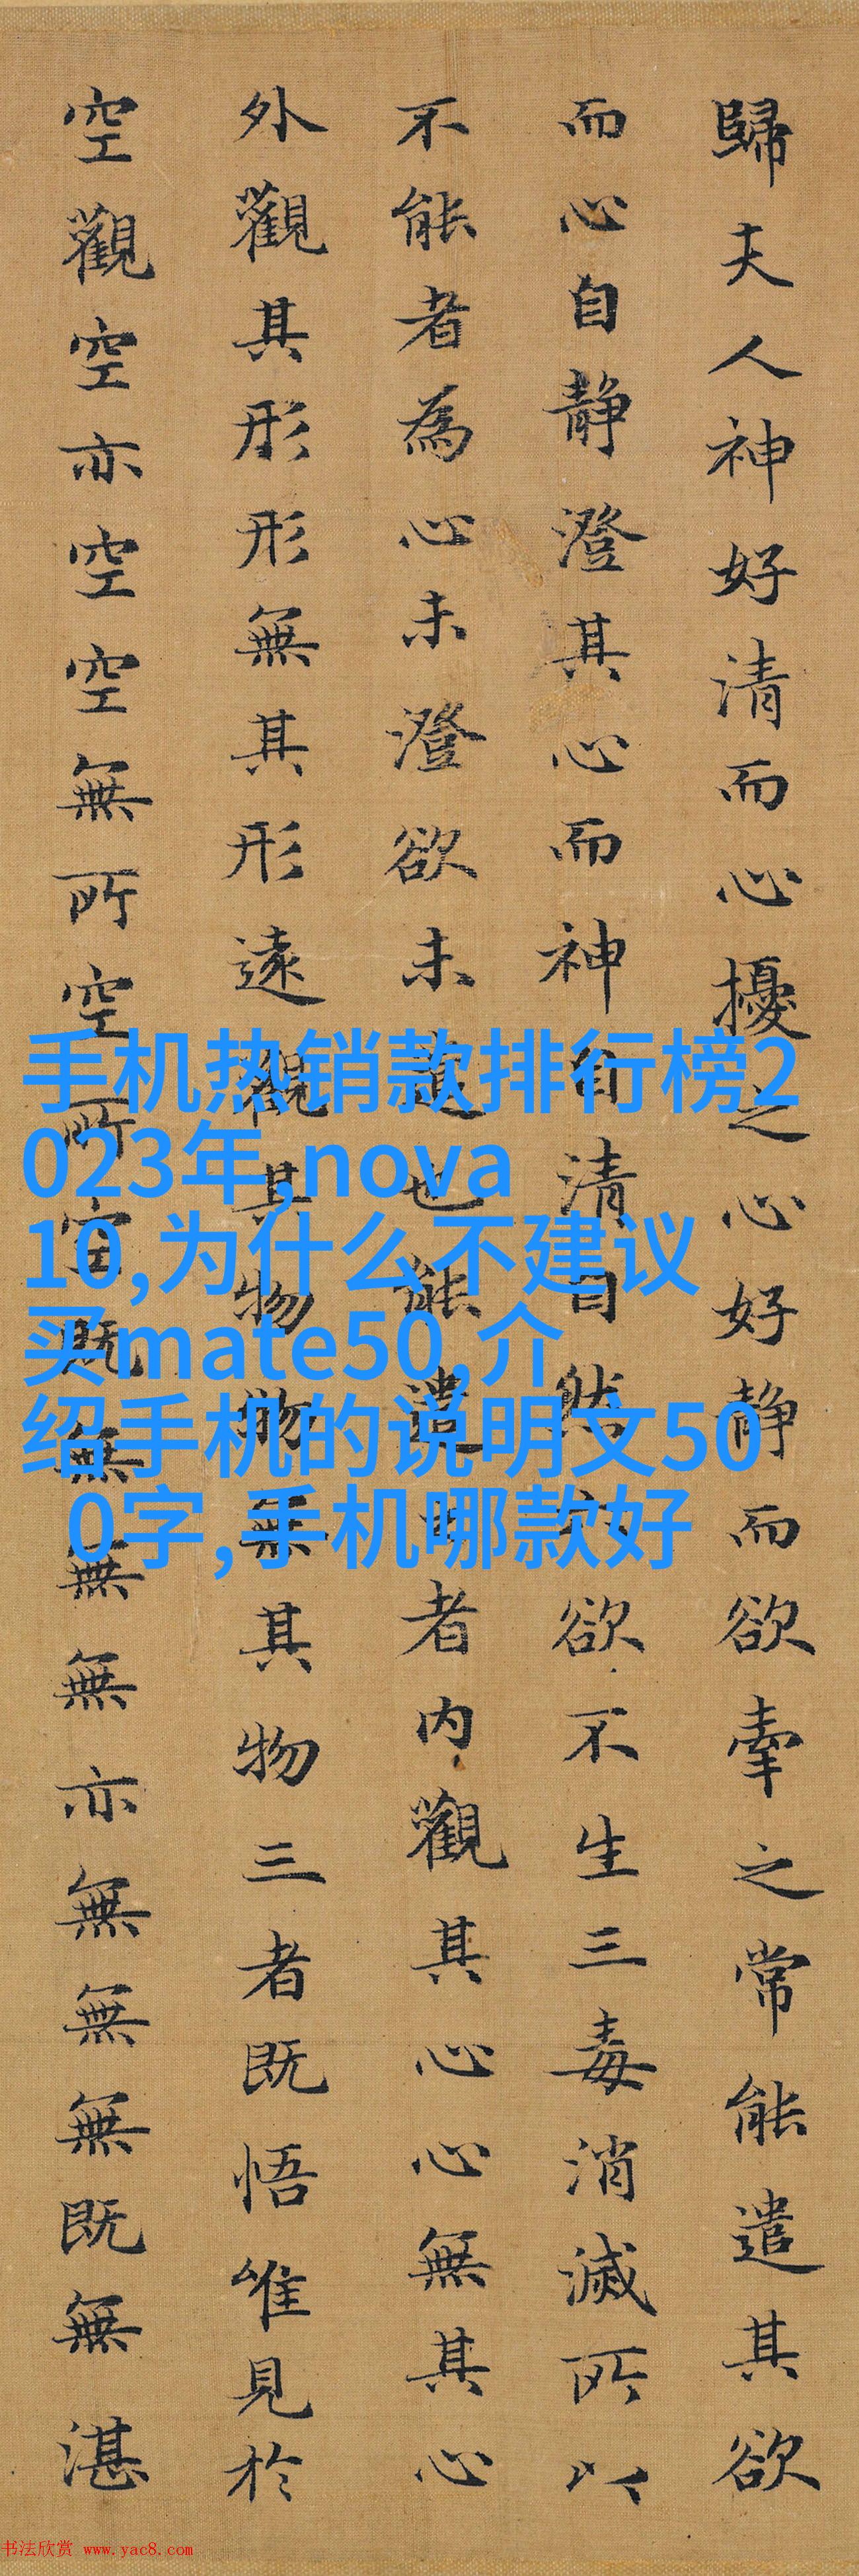 歸夫人神好清而心擾之心好静而欲牽之常能遣其欲
而心自静澄其心而神自清自然六欲不生三毒消滅所以
不能者為心未澄欲未遣也能遣之者内觀其心心無其心
外觀其形形無其形遠觀其物物無其物三者既悟唯見於
空觀空亦空空無所空所空既無無無亦無無無既無湛
手机热销款排行榜2
023年,nova
10,为什么不建议
买mate50,介
绍手机的说明文50
0字,手机哪款好
书法欣赏 www.yac8.com